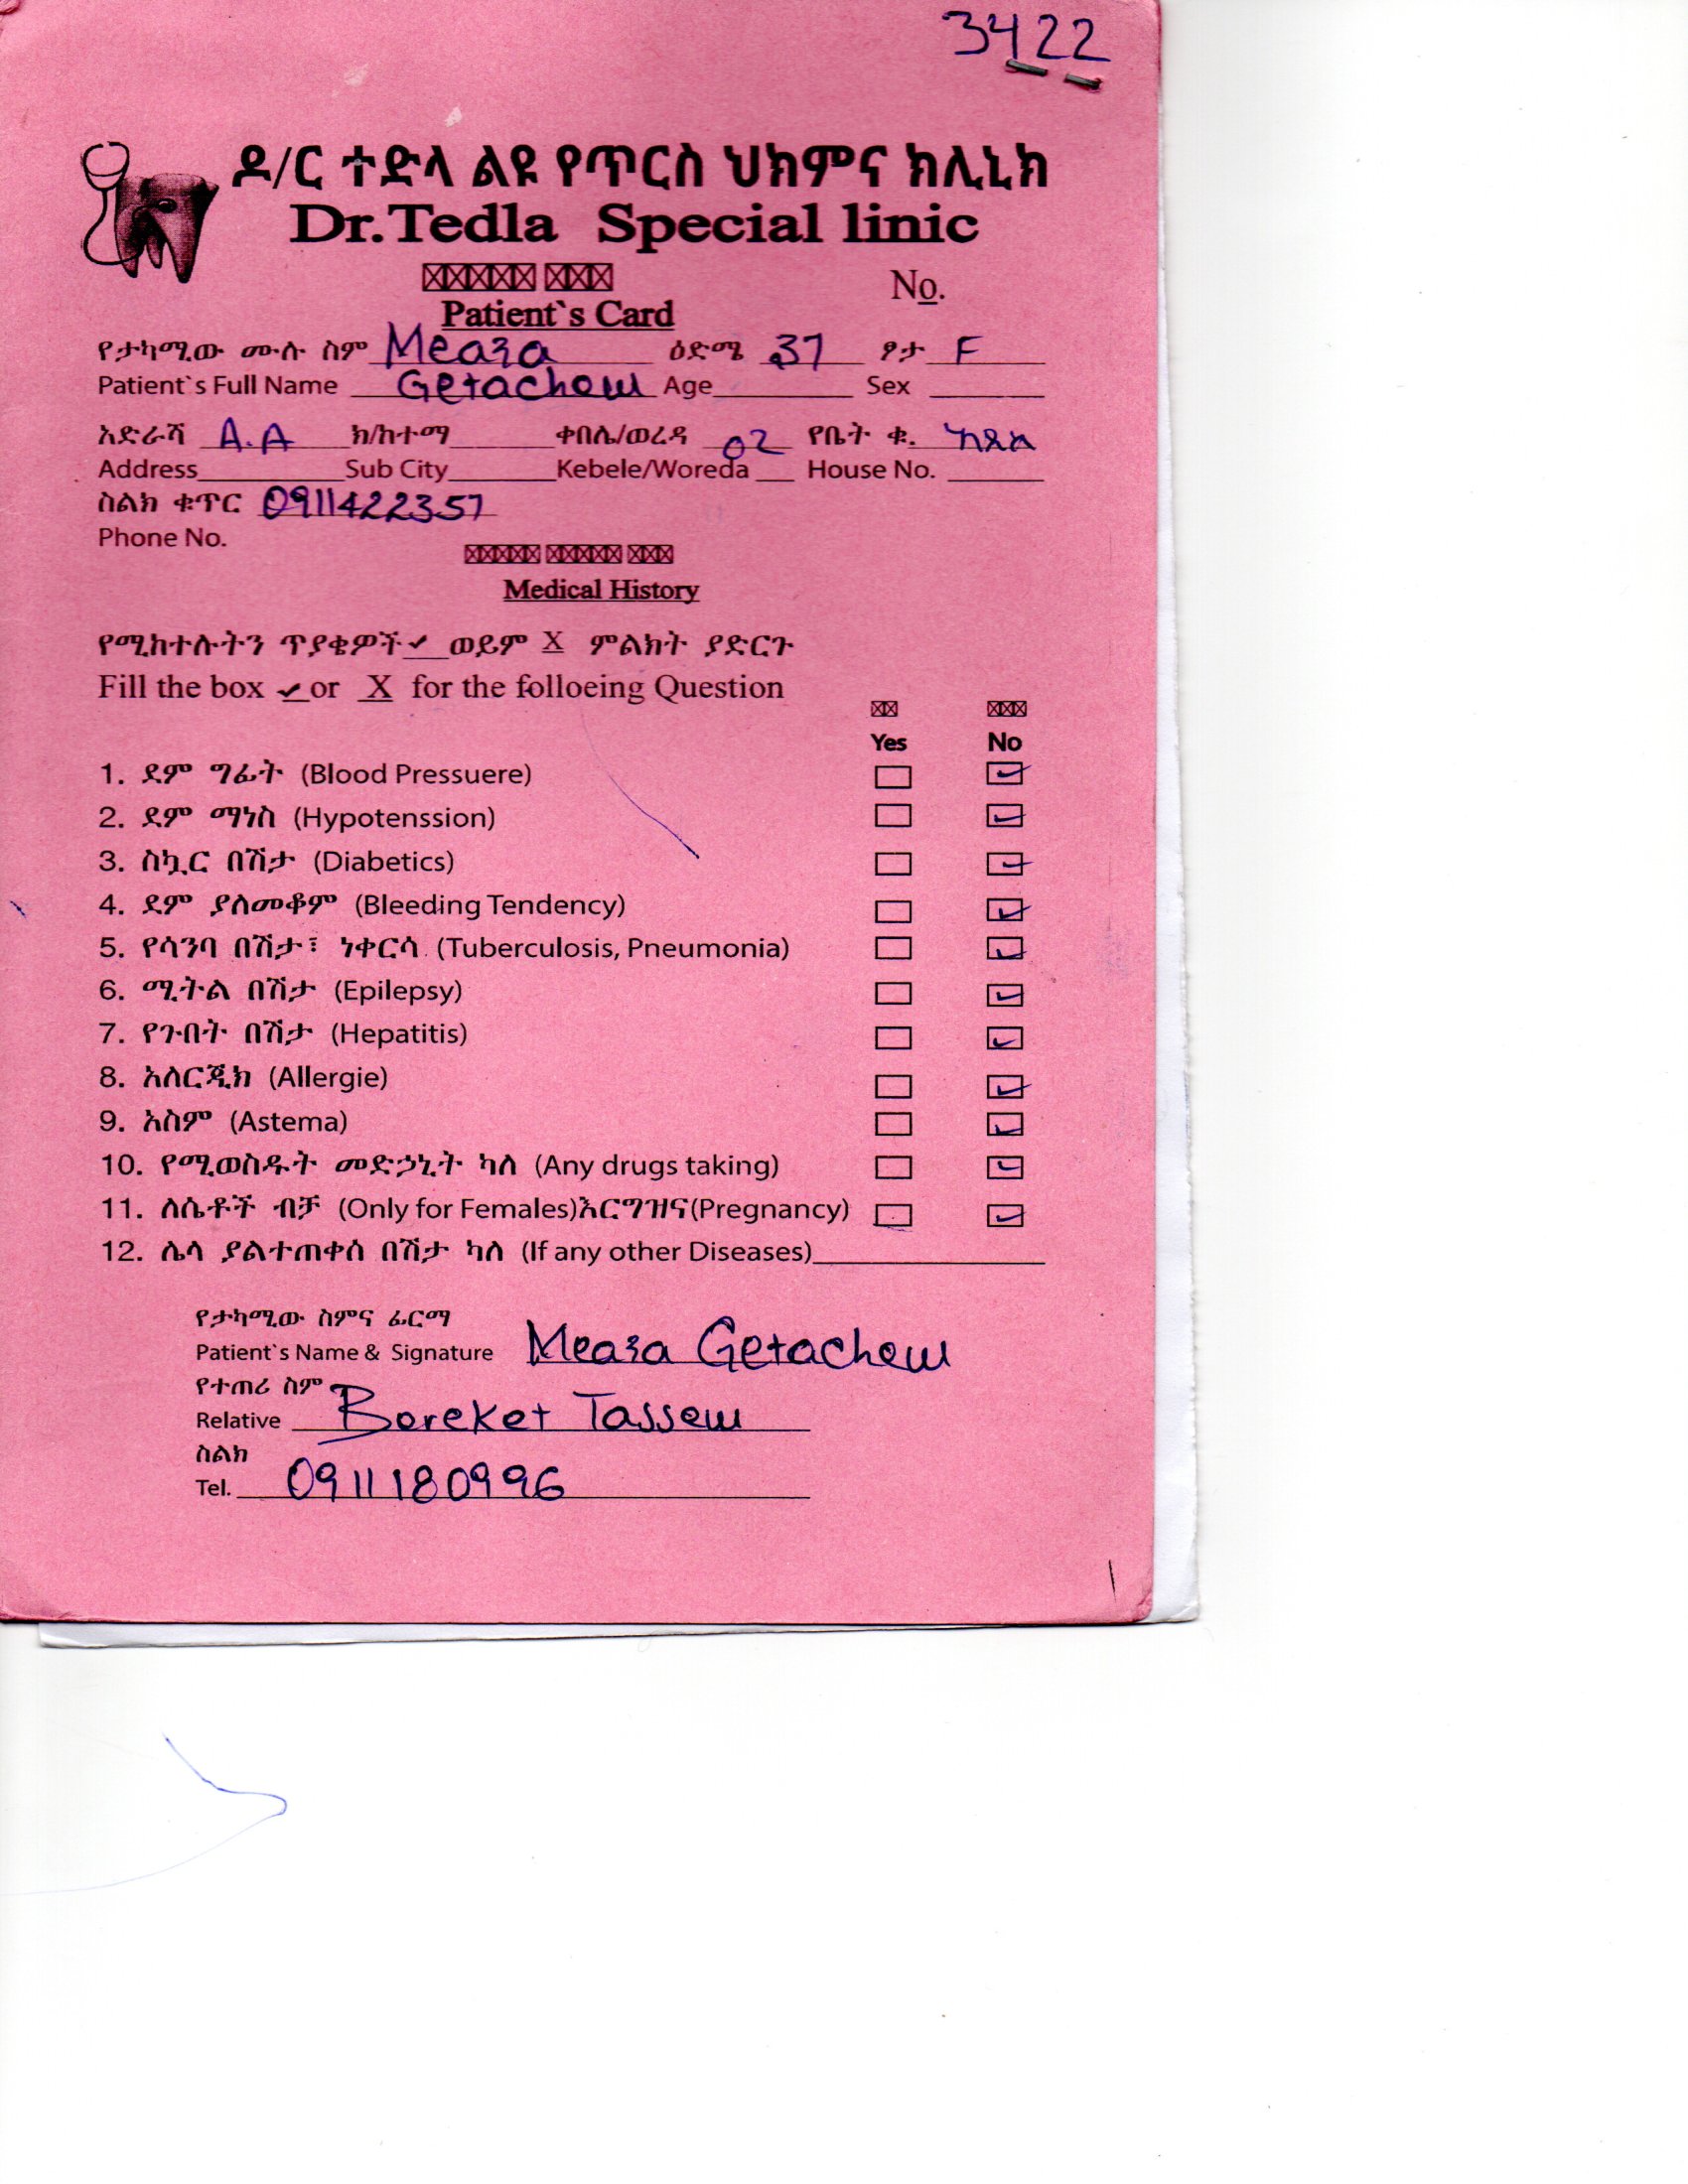 3422
ዶ/ር ተድላ ልዩ የጥርስ ህክምና ክሊኒክ
Dr.Tedla Special linic
No.
Patient`s Card
የታካሚው ሙሉ ስም Meaza ዕድሜ 37 ፆታ F
Patient`s Full Name Getachew Age Sex
አድራሻ A.A ክ/ከተማ ቀበሌ/ወረዳ 02 የቤት ቁ. አዲስ
Address Sub City Kebele/Woreda House No.
ስልክ ቁጥር 0911422357
Phone No.
Medical History
የሚከተሉትን ጥያቄዎች ✔ ወይም X ምልክት ያድርጉ
Fill the box ✔ or X for the folloeing Question
Yes No
1. ደም ግፊት (Blood Pressuere) ☐ ☑
2. ደም ማነስ (Hypotenssion) ☐ ☑
3. ስኳር በሽታ (Diabetics) ☐ ☑
4. ደም ያለመቆም (Bleeding Tendency) ☐ ☑
5. የሳንባ በሽታ፣ ነቀርሳ (Tuberculosis, Pneumonia) ☐ ☑
6. ሚትል በሽታ (Epilepsy) ☐ ☑
7. የጉበት በሽታ (Hepatitis) ☐ ☑
8. አለርጂክ (Allergie) ☐ ☑
9. አስም (Astema) ☐ ☑
10. የሚወስዱት መድኃኒት ካለ (Any drugs taking) ☐ ☑
11. ለሴቶች ብቻ (Only for Females)እርግዝና(Pregnancy) ☐ ☑
12. ሌላ ያልተጠቀሰ በሽታ ካለ (If any other Diseases)
የታካሚው ስምና ፊርማ
Patient`s Name & Signature Meaza Getachew
የተጠሪ ስም
Relative Bereket Tassew
ስልክ
Tel. 0911180996